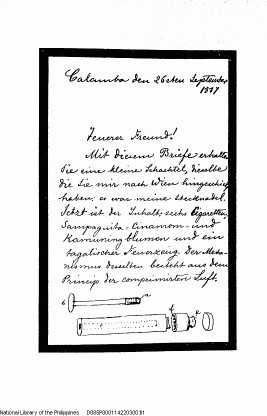 Calamba den 26sten September
1887
Teuerer Freund!
Mit diesem Briefe erhalten
Sie eine kleine Schachtel, dieselbe
die Sie mir nach Wien hingeschickt
haben: es war meine Stecknadel.
Jetzt ist der Inhalt: sechs Cigaretten,
Sampaguita- Cinamom- und
Kamuningblumen und ein
tagalischer Feuerzeug. Der Mecha-
nismus desselben besteht aus dem
Princip der comprimirten Luft.
National Library of the Philippines